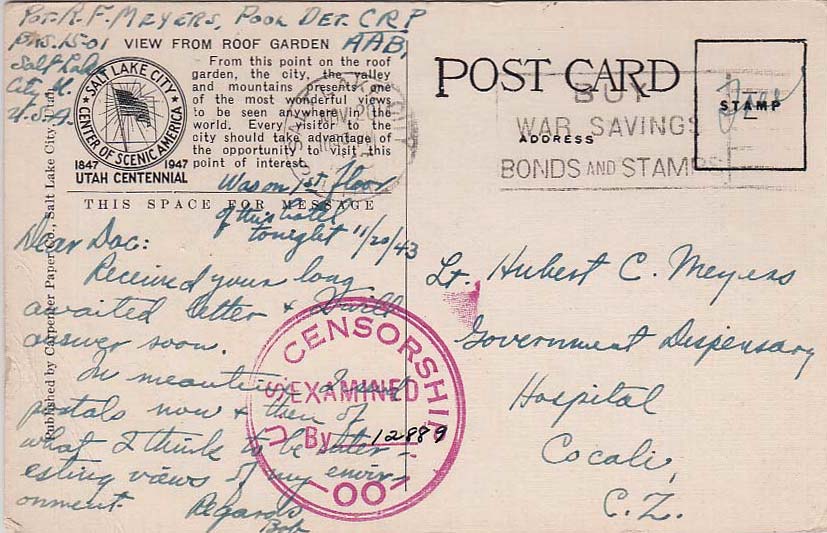 Pvt. R. F. MEYERS, POOL DET. CRP
BKS. 15-01
AAB,
Salt Lake
City
U.S.A.
VIEW FROM ROOF GARDEN
From this point on the roof
garden, the city, the valley
and mountains presents one
of the most wonderful views
to be seen anywhere in the
world. Every visitor to the
city should take advantage of
the opportunity to visit this
point of interest.
SALT LAKE CITY
CENTER OF SCENIC AMERICA
1847 1947
UTAH CENTENNIAL
THIS SPACE FOR MESSAGE
Was on 1st floor
of this hotel
tonight 11/20/43
Dear Doc:
Received your long
awaited letter & will
answer soon.
In meantime I send
postals now & then of
what I think to be inter-
esting views of my envir-
onment.
Regards
Bob
Published by Carpenter Paper Co., Salt Lake City, Utah
POST CARD
STAMP
Free
ADDRESS
SALT LAKE CITY
NOV 20
BUY
WAR SAVINGS
BONDS AND STAMPS
Lt. Hubert C. Meyers
Government Dispensary
Hospital
Cocali,
C.Z.
U.S. CENSORSHIP
EXAMINED
By 12889
OO